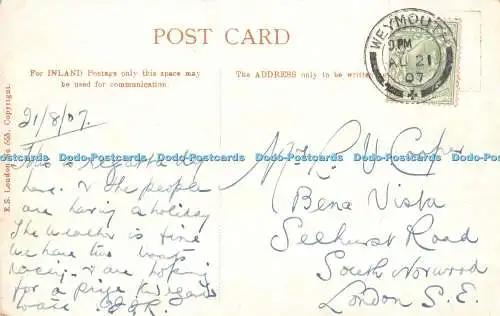 POST CARD
For INLAND Postage only this space may
be used for communication.
The ADDRESS only to be written
E.S. London Copyright.
WEYMOUTH
PM
AU 21
07
21/8/07.
This is regatta day
here. & the people
are having a holiday
The weather is fine
we have two boats
racing - & are hoping
for a prize Kind regards
to all.
Mr R. V Cooper
Bena Vista
Selhurst Road
South Norwood
London S.E.
Dodo-Postcards Dodo-Postcards Dodo-Postcards Dodo-Postcards Dodo-Postcards Dodo-Postcards Dodo-Postcards